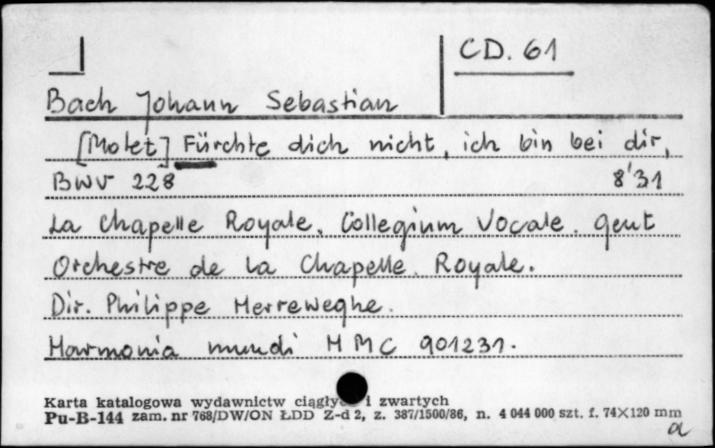 CD. 61
Bach Johann Sebastian
[Motet] Fürchte dich nicht, ich bin bei dir,
BWV 228 8'31
La Chapelle Royale. Collegium Vocale. gent
Orchestre de la Chapelle Royale.
Dir. Philippe Herreweghe.
Harmonia mundi HMC 901231.
Karta katalogowa wydawnictw i zwartych
Pu-B-144 zam. nr 768/DW/ON ŁDD Z-d 2, z. 387/1500/86, n. 4 044 000 szt. f. 74×120 mm
a